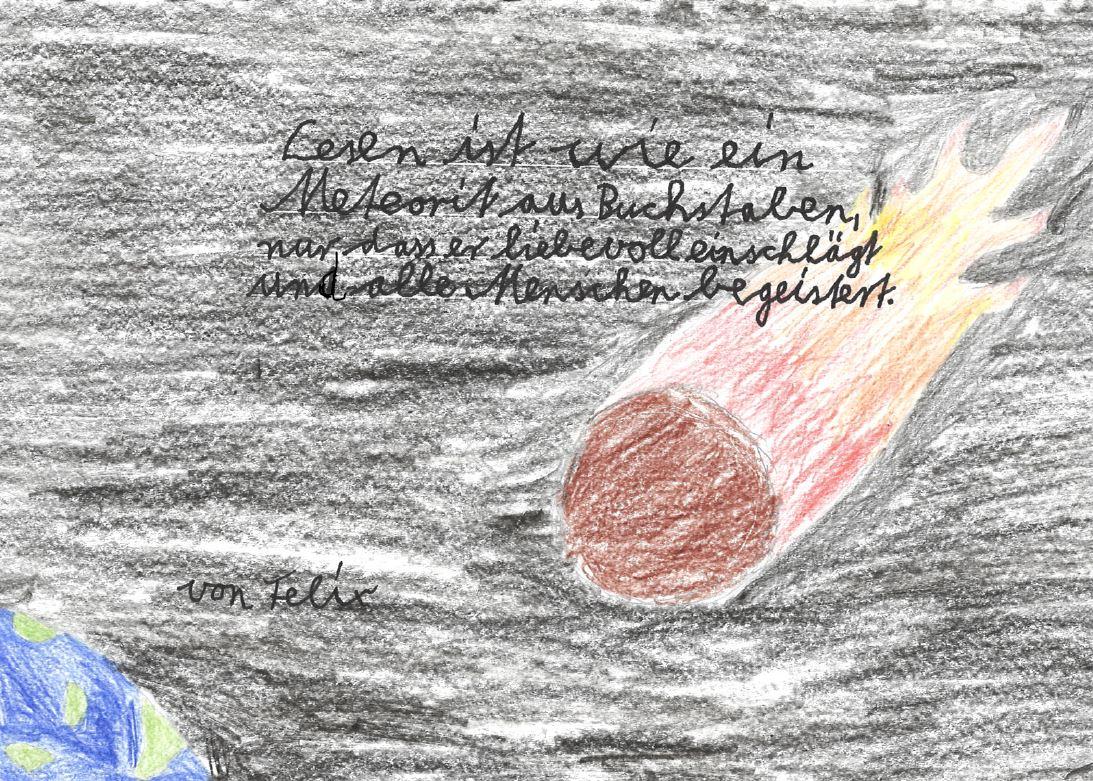 Lesen ist wie ein
Meteorit aus Buchstaben,
nur dass er liebevoll einschlägt
und alle Menschen begeistert.
von Felix